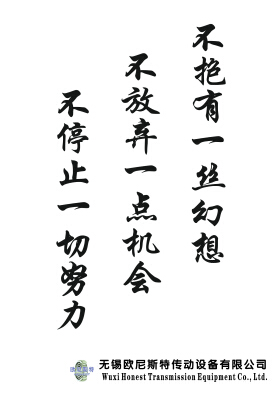 不抱有一丝幻想
不放弃一点机会
不停止一切努力
欧尼斯特
无锡欧尼斯特传动设备有限公司
Wuxi Honest Transmission Equipment Co., Ltd.